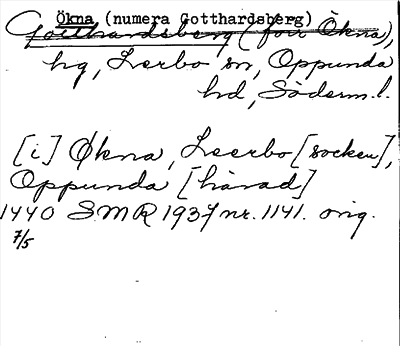 Ökna (numera Gotthardsberg)
Gotthardsberg (förr Ökna),
hg, Lerbo sn, Oppunda
hd, Söderm. l.
[i] Økna, Leerbo [socken],
Oppunda [härad]
1440 SMR 1937 nr. 1141. orig.
7/5